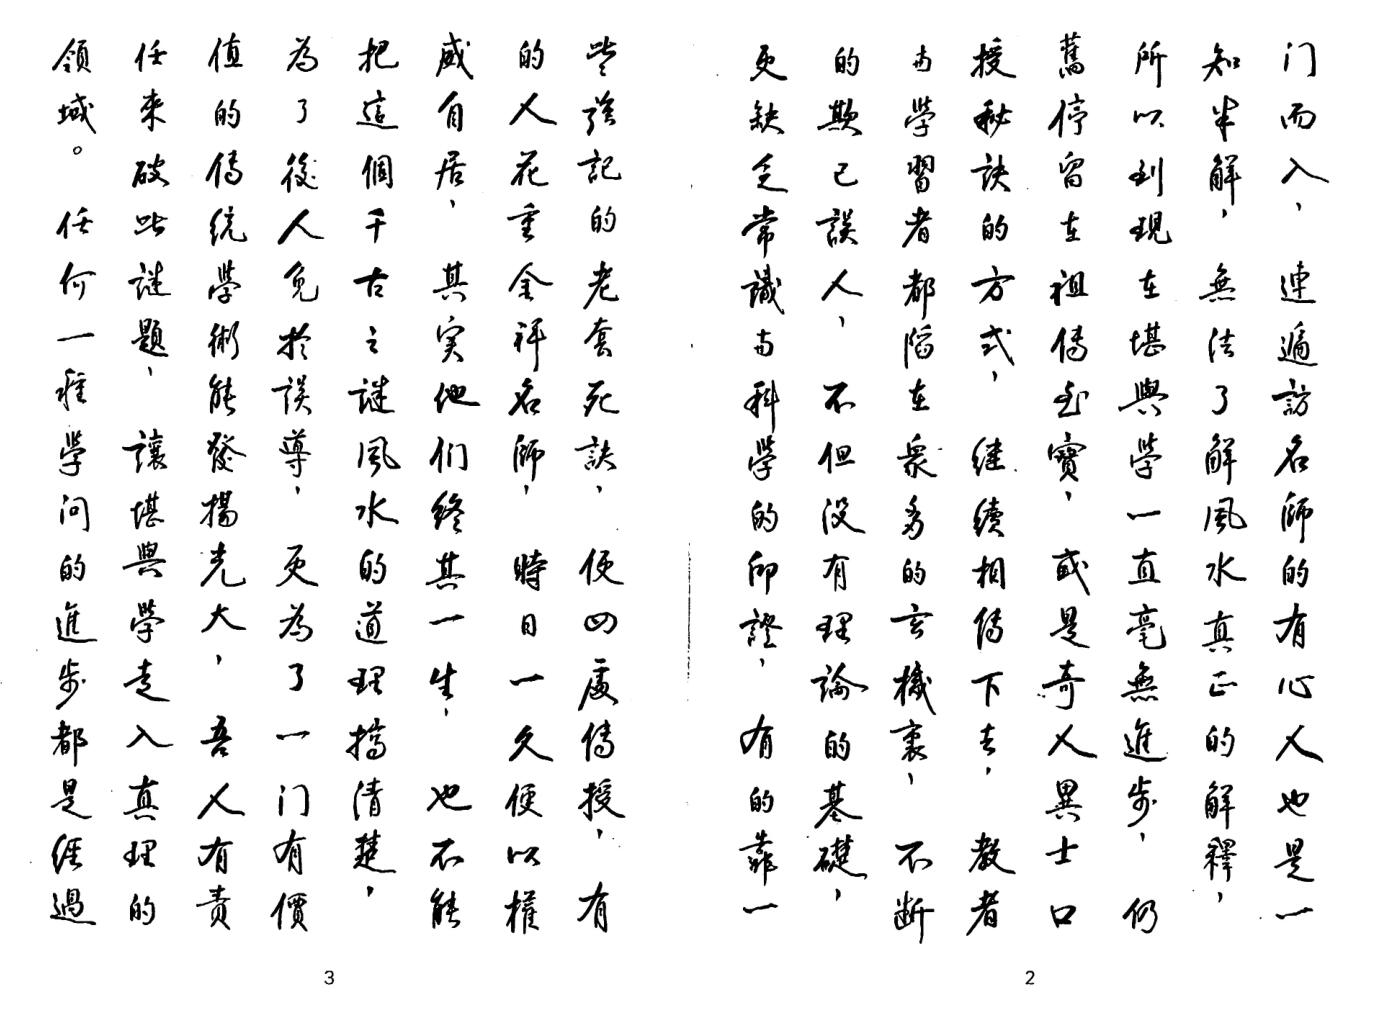 门而入，連遍訪名師的有心人也是一
知半解，無法了解風水真正的解釋，
所以到現在堪輿學一直毫無進步，仍
舊停留在祖傳至寶，或是奇人異士口
授秘訣的方式，继續相傳下去，教者
与學習者都陷在衆多的玄機裏，不断
的欺己誤人，不但没有理論的基礎，
更缺乏常識与科學的印證，有的靠一
2
些強記的老套死訣，便四處傳授，有
的人花重金拜名師，時日一久便以權
威自居，其実他们終其一生，也不能
把這個千古之謎風水的道理搞清楚，
為了後人免於誤導，更為了一门有價
值的傳統學術能發揚光大，吾人有責
任來破此謎題，讓堪輿學走入真理的
領域。任何一種學问的進步都是經過
3